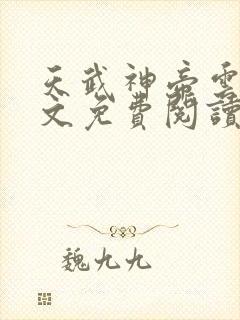 天武神帝雲
文免費閱讀
魏九九